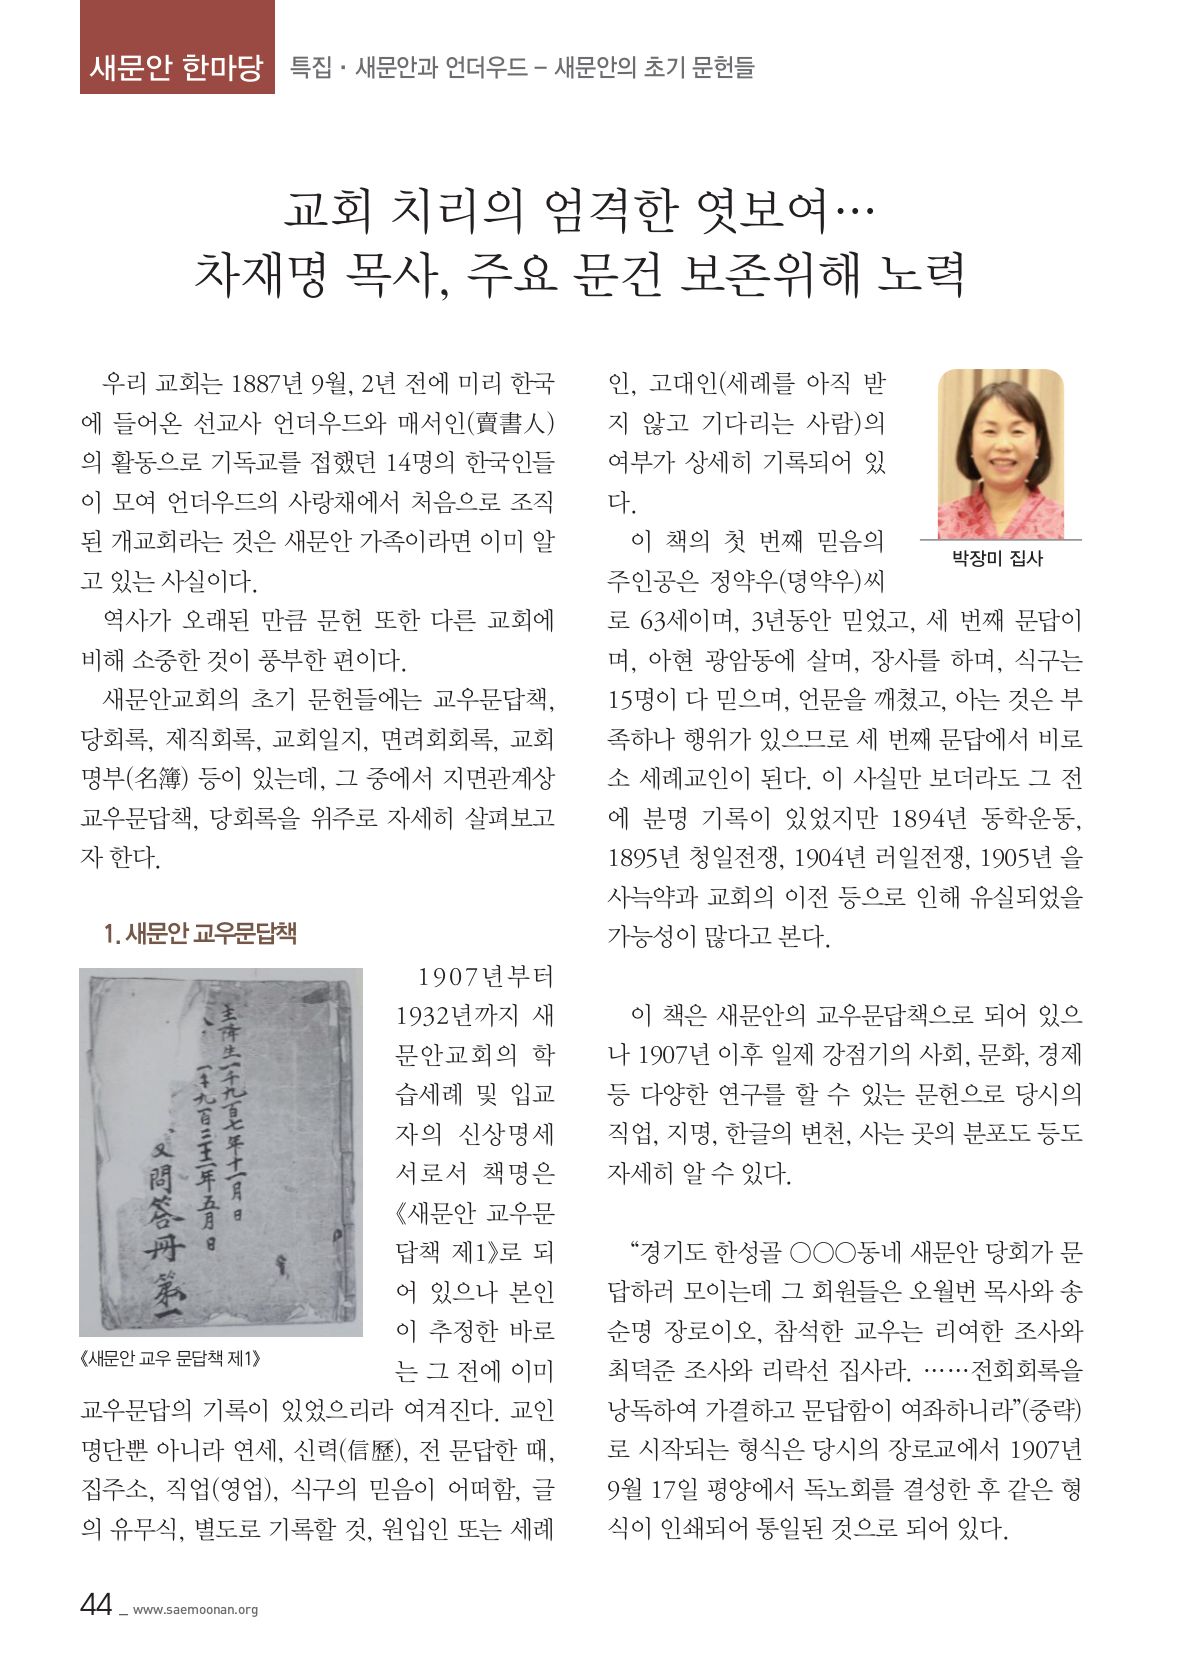 새문안 한마당
특집 · 새문안과 언더우드 – 새문안의 초기 문헌들
교회 치리의 엄격한 엿보여…
차재명 목사, 주요 문건 보존위해 노력
우리 교회는 1887년 9월, 2년 전에 미리 한국
에 들어온 선교사 언더우드와 매서인(賣書人)
의 활동으로 기독교를 접했던 14명의 한국인들
이 모여 언더우드의 사랑채에서 처음으로 조직
된 개교회라는 것은 새문안 가족이라면 이미 알
고 있는 사실이다.
역사가 오래된 만큼 문헌 또한 다른 교회에
비해 소중한 것이 풍부한 편이다.
새문안교회의 초기 문헌들에는 교우문답책,
당회록, 제직회록, 교회일지, 면려회회록, 교회
명부(名簿) 등이 있는데, 그 중에서 지면관계상
교우문답책, 당회록을 위주로 자세히 살펴보고
자 한다.
1. 새문안 교우문답책
主降生一千九百七年十一月 日
一千九百三十二年五月 日
問答冊 第一
《새문안 교우 문답책 제1》
1907년부터
1932년까지 새
문안교회의 학
습세례 및 입교
자의 신상명세
서로서 책명은
《새문안 교우문
답책 제1》로 되
어 있으나 본인
이 추정한 바로
는 그 전에 이미
교우문답의 기록이 있었으리라 여겨진다. 교인
명단뿐 아니라 연세, 신력(信歷), 전 문답한 때,
집주소, 직업(영업), 식구의 믿음이 어떠함, 글
의 유무식, 별도로 기록할 것, 원입인 또는 세례
인, 고대인(세례를 아직 받
지 않고 기다리는 사람)의
여부가 상세히 기록되어 있
다.
박장미 집사
이 책의 첫 번째 믿음의
주인공은 정약우(뎡약우)씨
로 63세이며, 3년동안 믿었고, 세 번째 문답이
며, 아현 광암동에 살며, 장사를 하며, 식구는
15명이 다 믿으며, 언문을 깨쳤고, 아는 것은 부
족하나 행위가 있으므로 세 번째 문답에서 비로
소 세례교인이 된다. 이 사실만 보더라도 그 전
에 분명 기록이 있었지만 1894년 동학운동,
1895년 청일전쟁, 1904년 러일전쟁, 1905년 을
사늑약과 교회의 이전 등으로 인해 유실되었을
가능성이 많다고 본다.
이 책은 새문안의 교우문답책으로 되어 있으
나 1907년 이후 일제 강점기의 사회, 문화, 경제
등 다양한 연구를 할 수 있는 문헌으로 당시의
직업, 지명, 한글의 변천, 사는 곳의 분포도 등도
자세히 알 수 있다.
“경기도 한성골 ○○○동네 새문안 당회가 문
답하러 모이는데 그 회원들은 오월번 목사와 송
순명 장로이오, 참석한 교우는 리여한 조사와
최덕준 조사와 리락선 집사라. ……전회회록을
낭독하여 가결하고 문답함이 여좌하니라”(중략)
로 시작되는 형식은 당시의 장로교에서 1907년
9월 17일 평양에서 독노회를 결성한 후 같은 형
식이 인쇄되어 통일된 것으로 되어 있다.
44 _ www.saemoonan.org